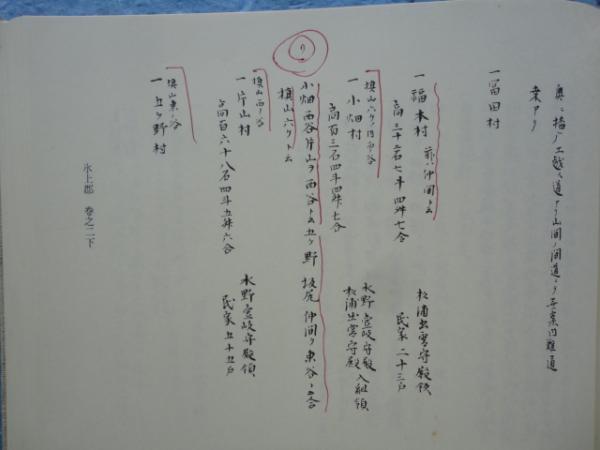 奥ニ播广エ越ル道アリ山間ノ間道ニテ無案内難通
業アリ
一 冨田村
一 福本村 前ハ仲間ト云
高三十二石七斗四升七合
松浦出雲守殿領
民家二十三戸
槙山六ケノ内西ノ谷
一 小畑村
高百三石四斗四升七合
水野壹岐守殿
松浦出雲守殿 入組領
り
小畑西谷片山ヲ西谷ト云五ケ野 坂尻 仲間ヲ東谷ト云合
槙山六ケト云
槙山西ノ谷
一 片山村
高百六十八石四斗五升六合
水野壹岐守殿領
民家五十五戸
槙山東ノ谷
一 五ケ野村
氷上郡 巻之二下